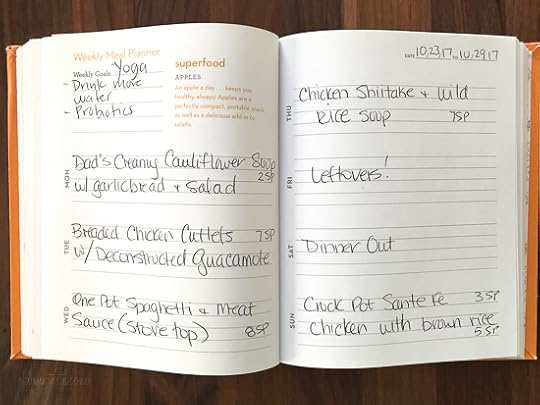 Weekly Meal Planner
Weekly Goals Yoga
- Drink more
water
- Probotics
superfood
APPLES
An apple a day . . . keeps you
healthy, always! Apples are a
perfectly compact, portable snack
as well as a delicious add-in to
salads.
MON
Dad's Creamy Cauliflower Soup
2SP
w/ garlic bread + Salad
TUE
Breaded Chicken Cutlets 7SP
w/ Deconstructed Guacamole
WED
One Pot Spaghetti & Meat
Sauce (stove top) 8SP
DATE 10.23.17 TO 10.29.17
THU
Chicken Shiitake + Wild
Rice Soup 7SP
FRI
Leftovers!
SAT
Dinner Out
SUN
Crock Pot Sante Fe 3SP
Chicken with brown rice
5SP